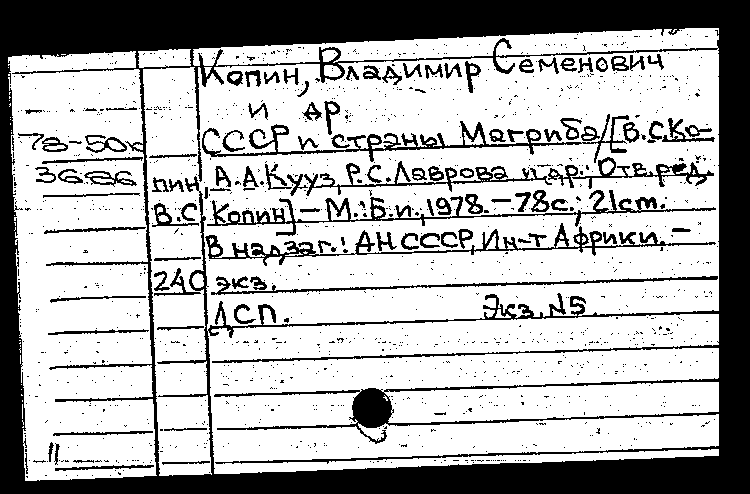 Копин, Владимир Семенович
и др.
78-50к СССР и страны Магриба/[В.С.Ко-
36686 пин, А.А.Кууз, Р.С.Лаврова и др.; Отв.ред.
В.С. Копин]. – М.: Б.и., 1978. – 78с.; 21cm.
В надзаг.: АН СССР, Ин-т Африки. –
240 экз.
ДСП. Экз. №5.